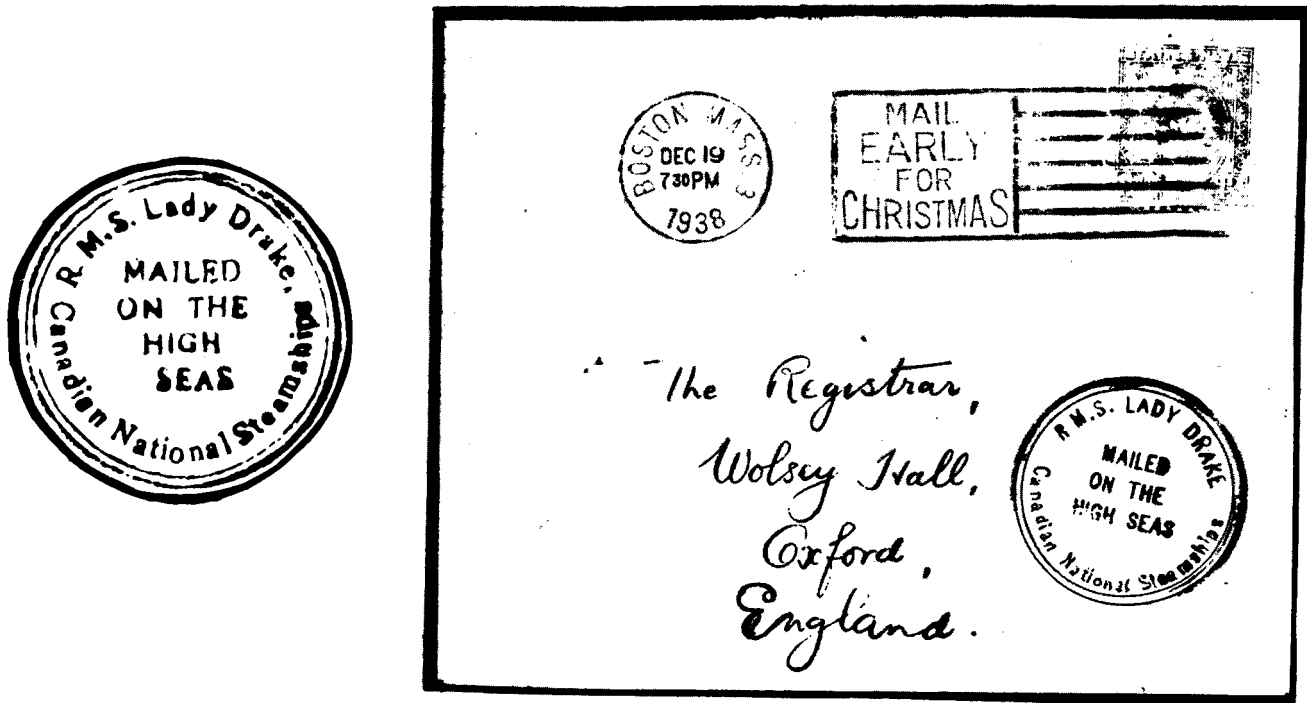 R.M.S. Lady Drake,
MAILED
ON THE
HIGH
SEAS
Canadian National Steamships
BOSTON MASS. 3
DEC 19
730PM
1938
MAIL
EARLY
FOR
CHRISTMAS
The Registrar,
Wolsey Hall,
Oxford,
England.
R.M.S. LADY DRAKE
MAILED
ON THE
HIGH SEAS
Canadian National Steamships